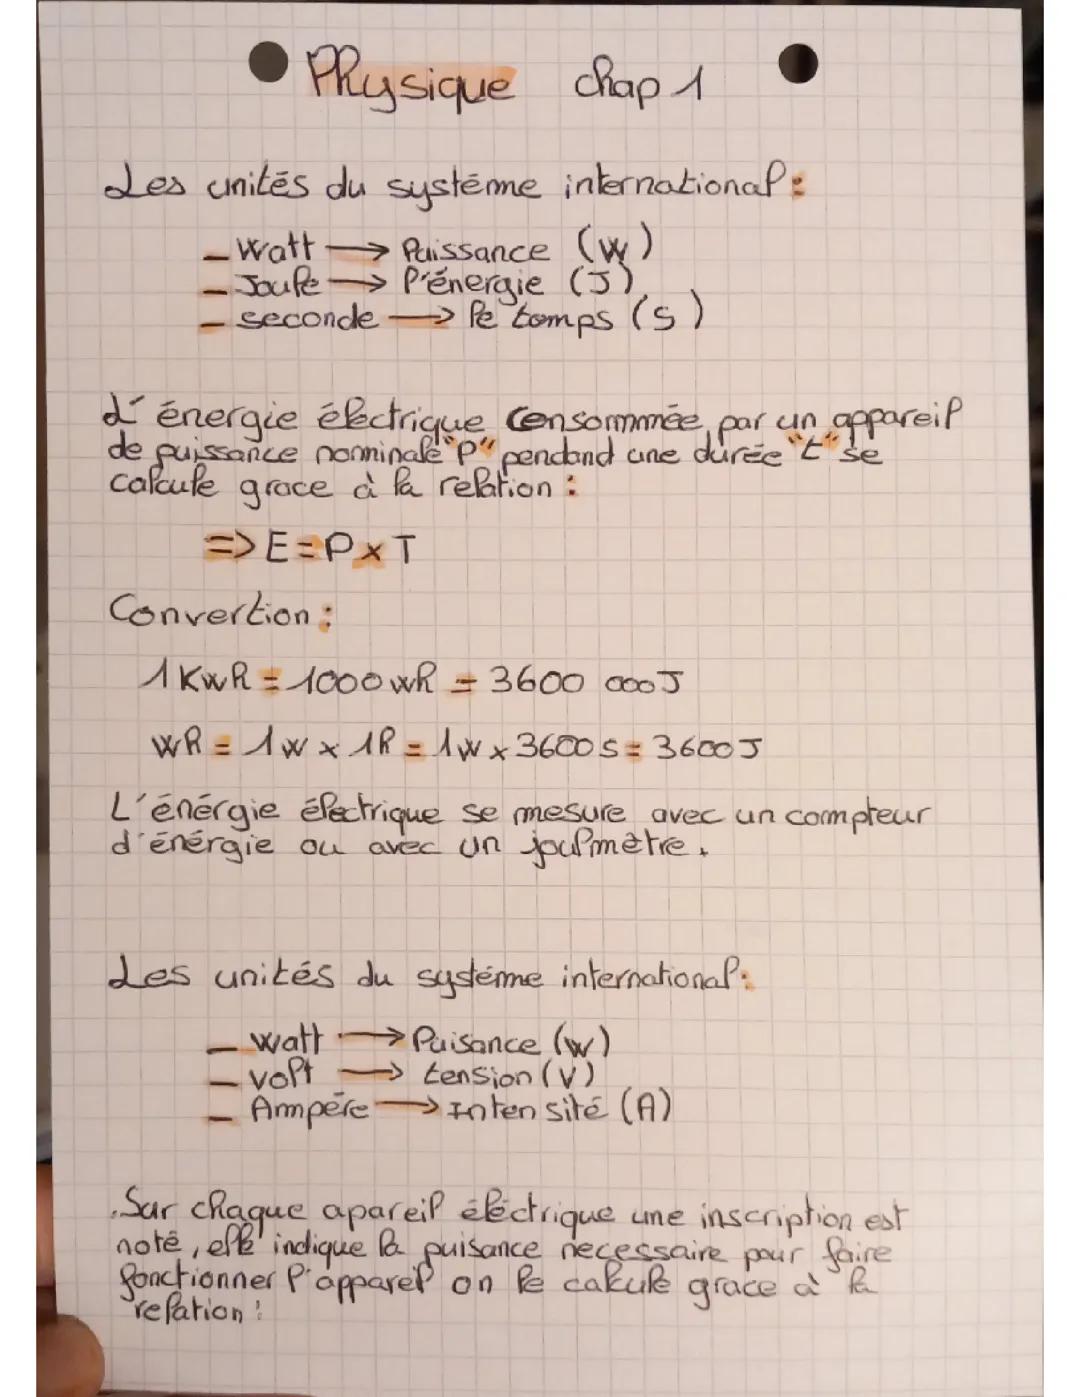 Physique chap 1
Les unités du systéme international :
- Watt → Puissance (W)
- Joule → l'énergie (J)
- seconde → le temps (s)
L'énergie électrique consommmée par un appareil
de puissance nominale "P" pendand une durée "t" se
calcule grace à la relation :
=> E = P x T
Convertion :
1 Kwh = 1000 wh = 3600 000 J
wh = 1w x 1h = 1w x 3600 s = 3600 J
L'énérgie électrique se mesure avec un compteur
d'énérgie ou avec un joulmètre.
Les unités du systéme international :
- watt → Puisance (w)
- volt → tension (V)
- Ampére → Intensité (A)
. Sur chaque apareil éléctrique une inscription est
noté, elle indique la puisance necessaire pour faire
fonctionner l'apparel on le calcule grace à la
relation :